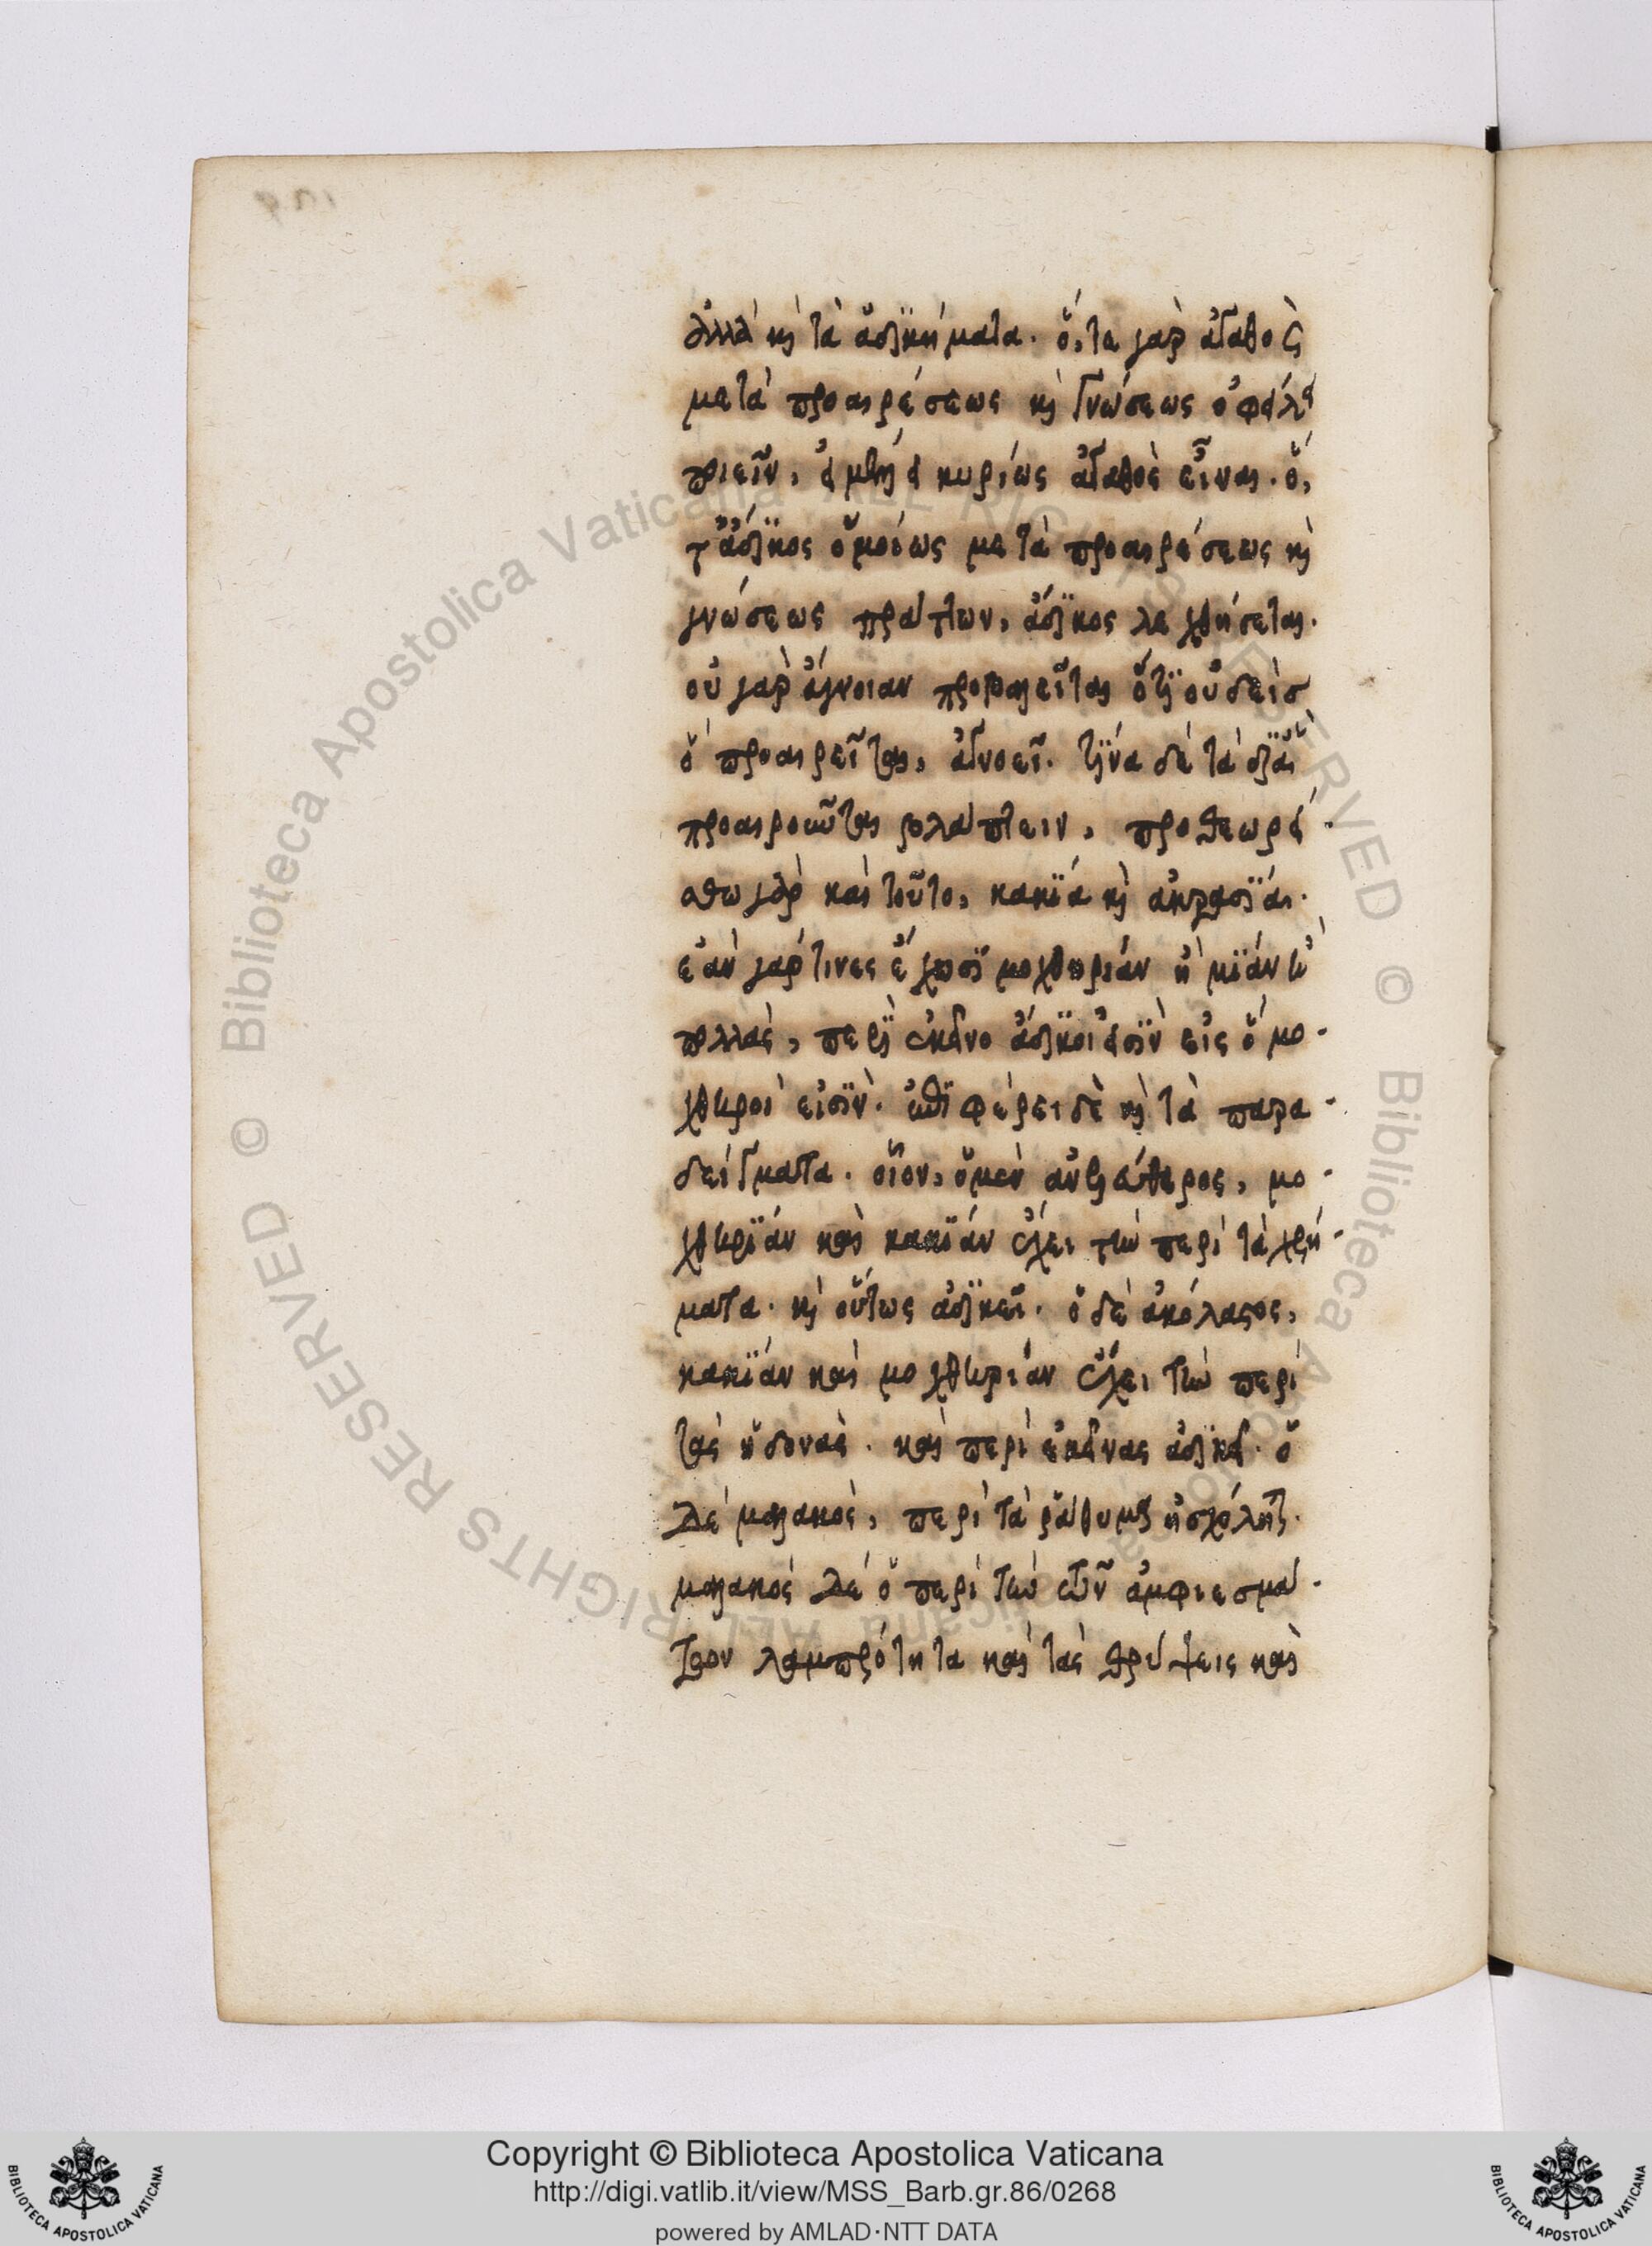 ἀλλὰ καὶ τὰ ἀδικήματα. ὅ, τε γὰρ ἀγαθὸς
μετὰ προαιρέσεως καὶ γνώσεως ὀφείλει
ποιεῖν, εἰ μέλλει κυρίως ἀγαθὸς εἶναι. ὅ,
τ' ἄδικος ὁμοίως μετὰ προαιρέσεως καὶ
γνώσεως πράττων, ἄδικος λεχθήσεται.
οὐ γὰρ ἄγνοιαν προβαλεῖται ὅτι οὐδεὶσ
ὃ προαιρεῖται, ἀγνοεῖ. τίνα δὲ τὰ
προαιροῦνται βλάπτειν, προθεωρεί
σθω γὰρ καὶ τοῦτο, κακία καὶ ἀκρασία.
ἐὰν γάρ τινες ἔχωσι μοχθηρίαν ἢ μίαν ἢ
πολλὰς, περὶ ἐκεῖνο ἄδικοι εἰσὶν εἰς ὃ μο-
χθηροὶ εἰσὶν. ἐπιφέρει δὲ καὶ τὰ παρα-
δείγματα. οἷον, ὁ μὲν ἀνελεύθερος, μο-
χθηρίαν καὶ κακίαν ἔχει τὴν περὶ τὰ χρή-
ματα. καὶ οὕτως ἀδικεῖ. ὁ δὲ ἀκόλαστος,
κακίαν καὶ μοχθηρίαν ἔχει τὴν περὶ
τὰς ἡδονὰς. καὶ περὶ ἐκείνας ἀδικεῖ. ὁ
δὲ μαλακὸς, περὶ τὰ ῥάθυμα
μαλακὸς δὲ ὁ περὶ τὴν τῶν ἀμφιεσμά-
των λαμπρότητα καὶ τὰς θρύψεις καὶ
Copyright © Biblioteca Apostolica Vaticana
http://digi.vatlib.it/view/MSS_Barb.gr.86/0268
powered by AMLAD·NTT DATA